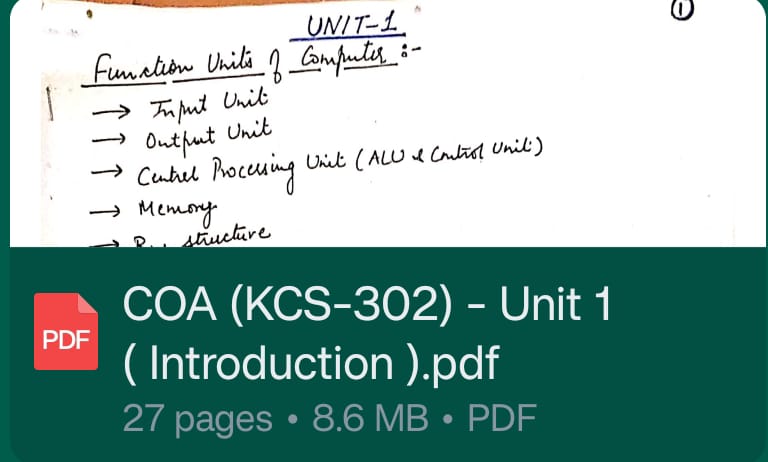 UNIT-1
1
Function Units of Computer :-
→ Input Unit
→ Output Unit
→ Central Processing Unit (ALU & Control Unit)
→ Memory
→ structure
PDF
COA (KCS-302) - Unit 1
( Introduction ).pdf
27 pages • 8.6 MB • PDF